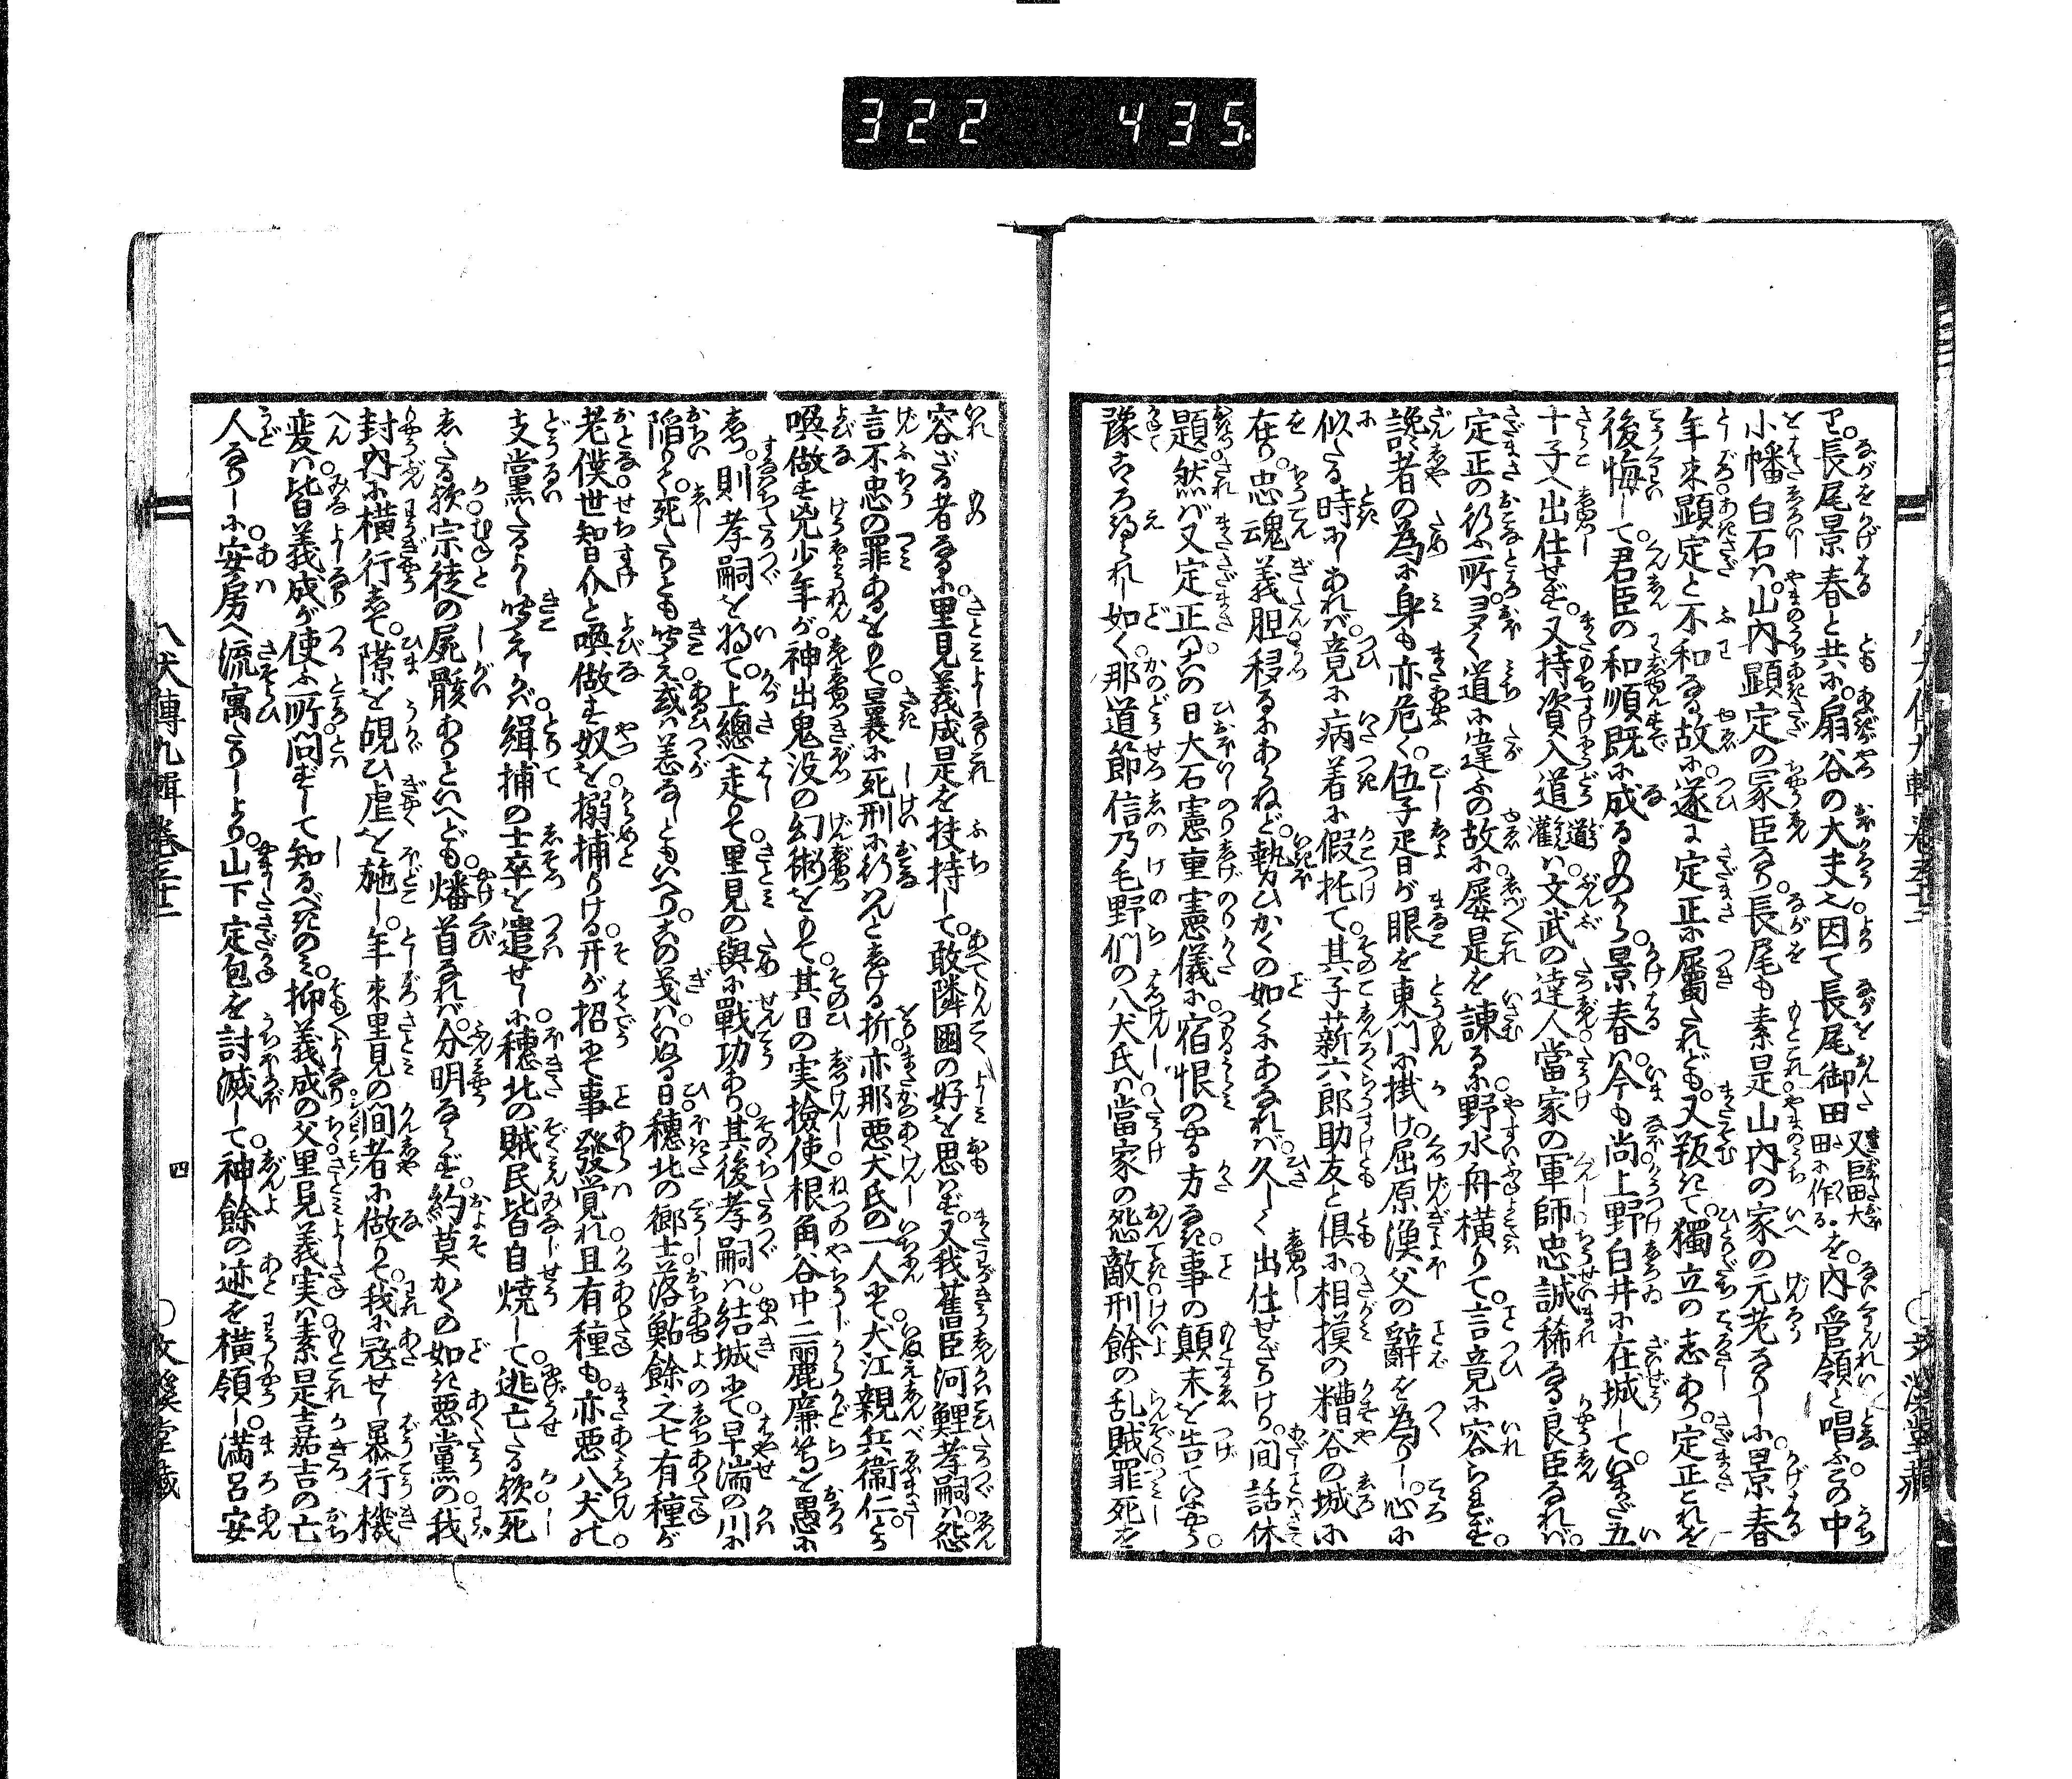 322 435.
て。長尾景春と共に。扇谷の大丈之因て長尾御田又巨田大田に作る。を。内管領と唱ふ。この中
小幡白石ハ。山内顕定の家臣なり長尾も素是山内の家の元老なりしに。景春
年来顕定と不和なる故に。遂に定正に属たれども。又叛きて獨立の志あり。定正これを
後悔して。君臣の和順既に成るものから。景春ハ今も尚上野白井に在城して。いまだ五
十子へ出仕せず。又持資入道道灌ハ。文武の達人當家の軍師忠誠稀なる良臣なれバ。
定正の行ふ所。ヨヲく道に違ふの故に。屡是を諫るに。野水舟横りて。言竟に容られず。
讒者の為に身も亦危く。伍子疋日が眼を東門に掛け。屈原漁父の辭を為りし。心に
似たる時にしあれバ。竟に病着に假托て。其子薪六郎助友と倶に。相摸の糟谷の城に
在り。忠魂義胆稷るにあらねど。勢ひかくの如くにあなれバ。久しく出仕せざりけり。間話休
題。然バ又定正ハ。その日大石憲重憲儀に。宿恨のやる方なき。事の顛末を告ていふやう。
豫て知られし如く。那道節信乃毛野們の八犬氏ハ。當家の怨敵刑餘の乱賊罪死を
容ざる者なるに。里見義成是を扶持して。敢隣國の好を思ハず。又我舊臣河鯉孝嗣ハ。怨
言不忠の罪あるをもて。曩に死刑に行ハんとしける折。亦那悪犬氏の一人にて。犬江親兵衞仁とか
喚做す兇少年が。神出鬼没の幻術をもて。其日の実撿使根角谷中二麗廉等を愚に
しつ。則孝嗣を將て。上總へ走りて。里見の與に戰功あり。其後孝嗣ハ。結城にて。早湍の川に
陥りて。死たりとも聞え。或ハ恙なしともいへり。その義ハいぬる日。穂北の郷士。落鮎餘之七有種が
老僕世智介と喚做す奴を。搦捕りける。开が招にて事發覚れ且有種も。亦悪八犬の
支黨たるよし聞えしかバ。緝捕の士卒を遣せしに。穂北の賊民皆自焼して。逃亡たる欤死
したる欤。宗徒の屍骸ありといへども。燔首なれバ。分明ならず。約莫かくの如き悪黨の。我
封内に横行して。隙を覘ひ虐を施し。年来里見の間者に做りて。我に寇せし暴行機
変ハ。皆義成が使ふ所。問ずして知るべきのミ。抑義成の父里見義実ハ。素是嘉吉の亡
人なりしに。安房へ流寓たりしより。山下定包を討滅して。神餘の迹を横領し。満呂安
八犬傳九輯 巻三十二 四 〇文溪堂藏